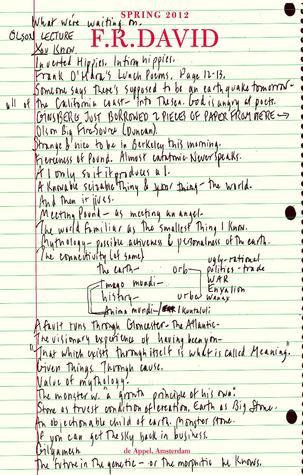 SPRING 2012
What we're waiting on.
OLSON LECTURE
F.R.DAVID
You Know.
Inverted Hippies. Intrim hippies.
Frank O'Hara's Lunch Poems. Page 12-13.
Someone says there's supposed to be an earthquake tomorrow-
all of the California coast- into the sea. God is angry at poets.
GINSBERG JUST BORROWED 2 PIECES OF PAPER FROM ME
Olson Big Fire Source (Duncan).
Strange & nice to be in Berkeley this morning.
Fierceness of Pound. Almost catatonic. Never speaks.
A I only so it produces a I.
A Knowable seizable Thing & your thing - the world.
And then it jives.
Meeting Pound - as meeting an angel.
The world familiar as the Smallest Thing I Know.
Mythology - possible activeness & personalness of the earth.
The connectivity (of same)
ugly-rational
the earth- orb politics-trade
Imago mundi- WAR
Enyalion
history- urbe wanax
Anima mundi-
A fault runs Through Gloucester - The Atlantic-
The visionary experience of having been you-
"That which exists through itself is what is called Meaning."
Given Things. Through cause.
Value of mythology.
The monster w. a growth principle of his own.
Stone as truest condition of creation. Earth as Big Stone.
An objectionable child of earth. Monster stone.
If you can get the sky back in business.
Gilgamesh
de Appel, Amsterdam
The future in the genetic - or the morphic he Knows.